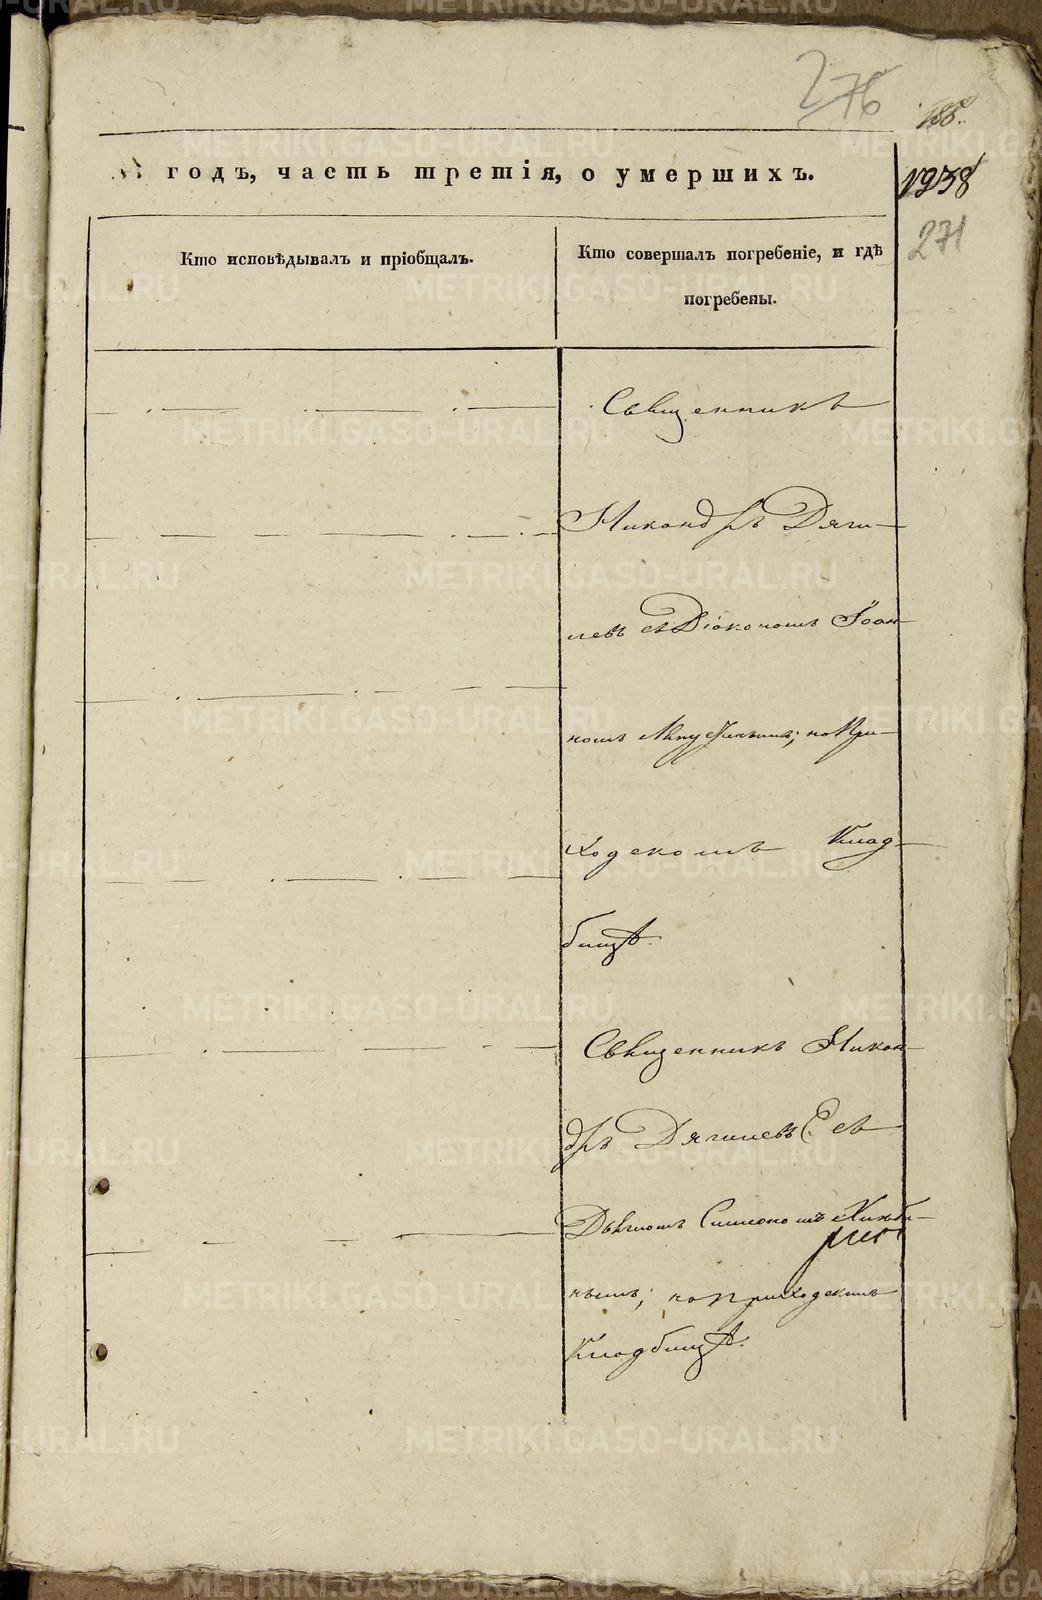 276
1938
271
годъ, часть третія, о умершихъ.
Кто исповѣдывалъ и пріобщалъ.
Кто совершалъ погребеніе, и гдѣ
погребены.
Священникъ
Никандръ Дяги-
левъ съ Діакономъ Іоан-
номъ на При-
ходскомъ Клад-
бищѣ.
Священникъ Никан-
дръ Дягилевъ съ
Дьячкомъ Симеономъ
нымъ; на приходскомъ
Кладбищѣ.
METRIKI.GASO-URAL.RU